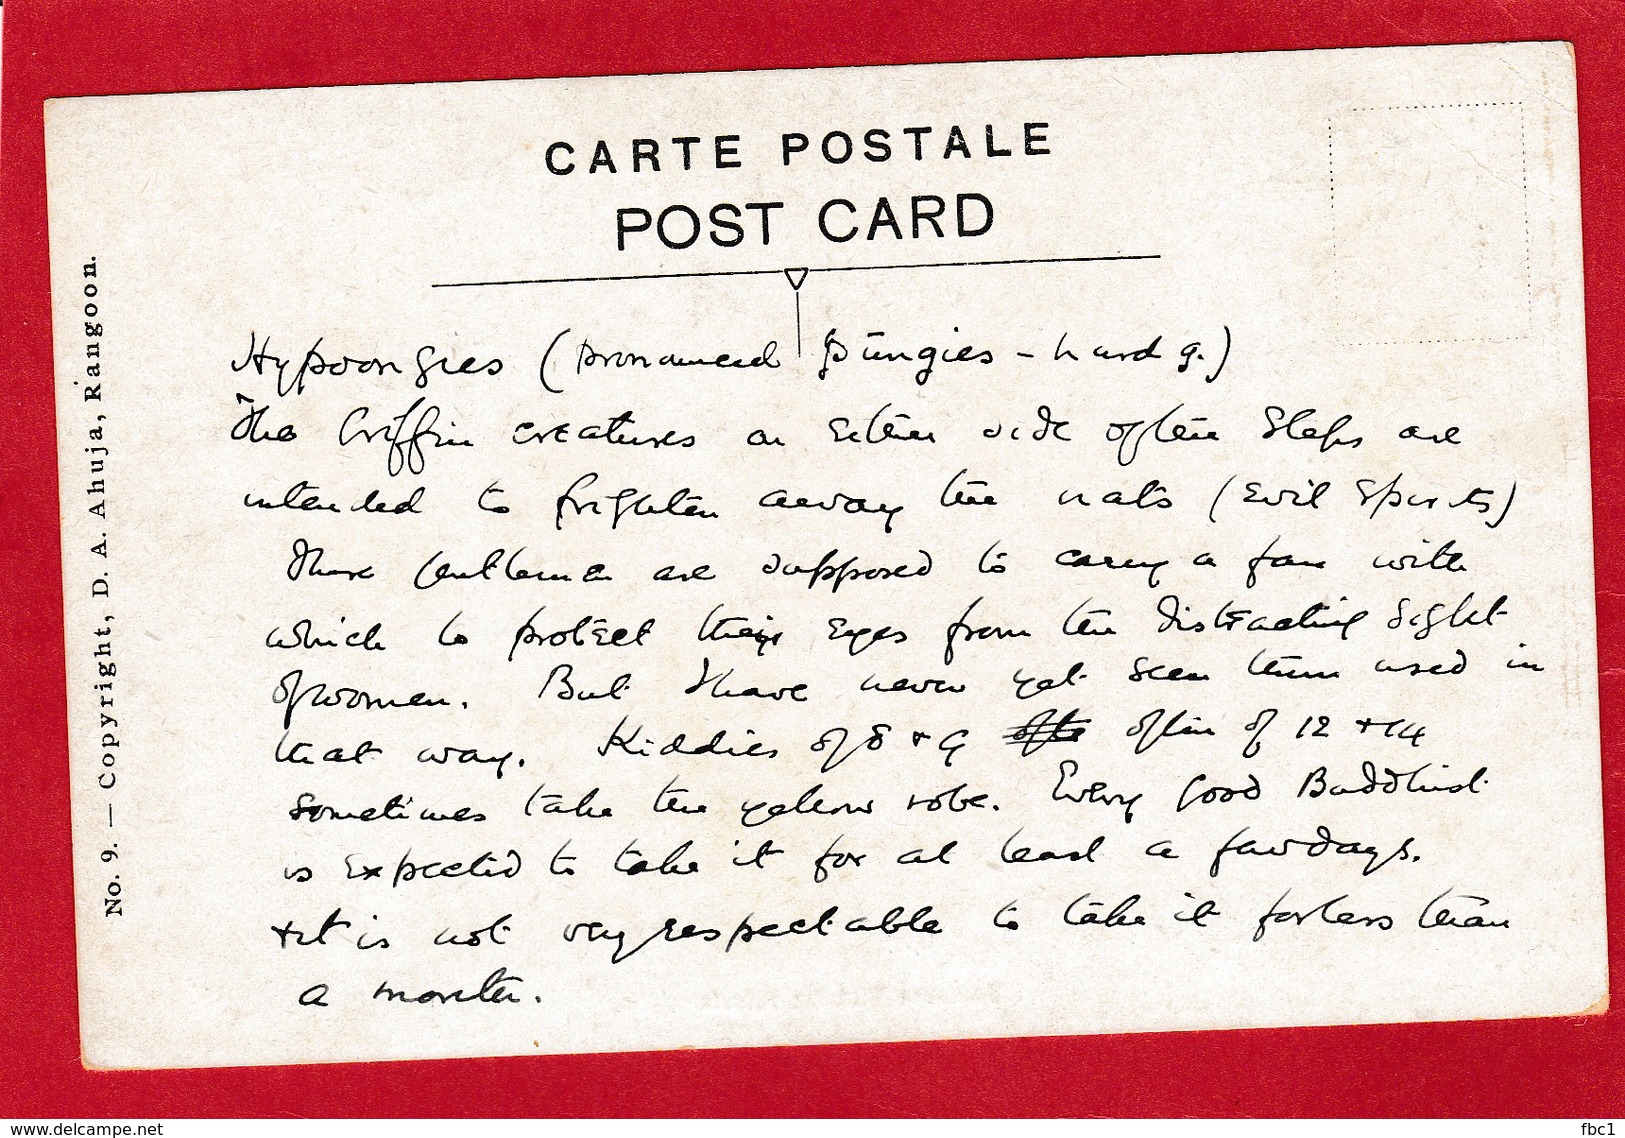 CARTE POSTALE
POST CARD
Hypoongies (pronounced pūngies - hard g.)
The Griffin creatures on either side of the steps are
intended to frighten away the nats (Evil Spirits)
These Gentlemen are supposed to carry a fan with
which to protect their eyes from the distracting sight
of women. But I have never yet seen them used in
that way. Kiddies of 8 + 9 often of 12 + 14
sometimes take the yellow robe. Every good Buddhist
is expected to take it for at least a few days.
+ it is not very respectable to take it for less than
a month.
No. 9. — Copyright, D. A. Ahuja, Rangoon.
www.delcampe.net
fbc1